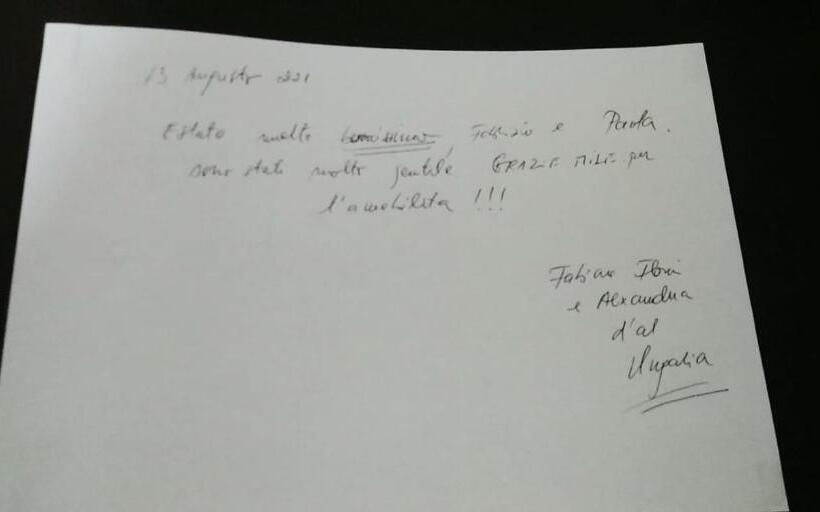 13 Augusto 2021
Estato molto benissimo, Fabrizio e Paola.
sono stati molto jentile GRAZIE MILE per
l'amabilita !!!
Fabian
e Alexandra
d'al
Ungalia